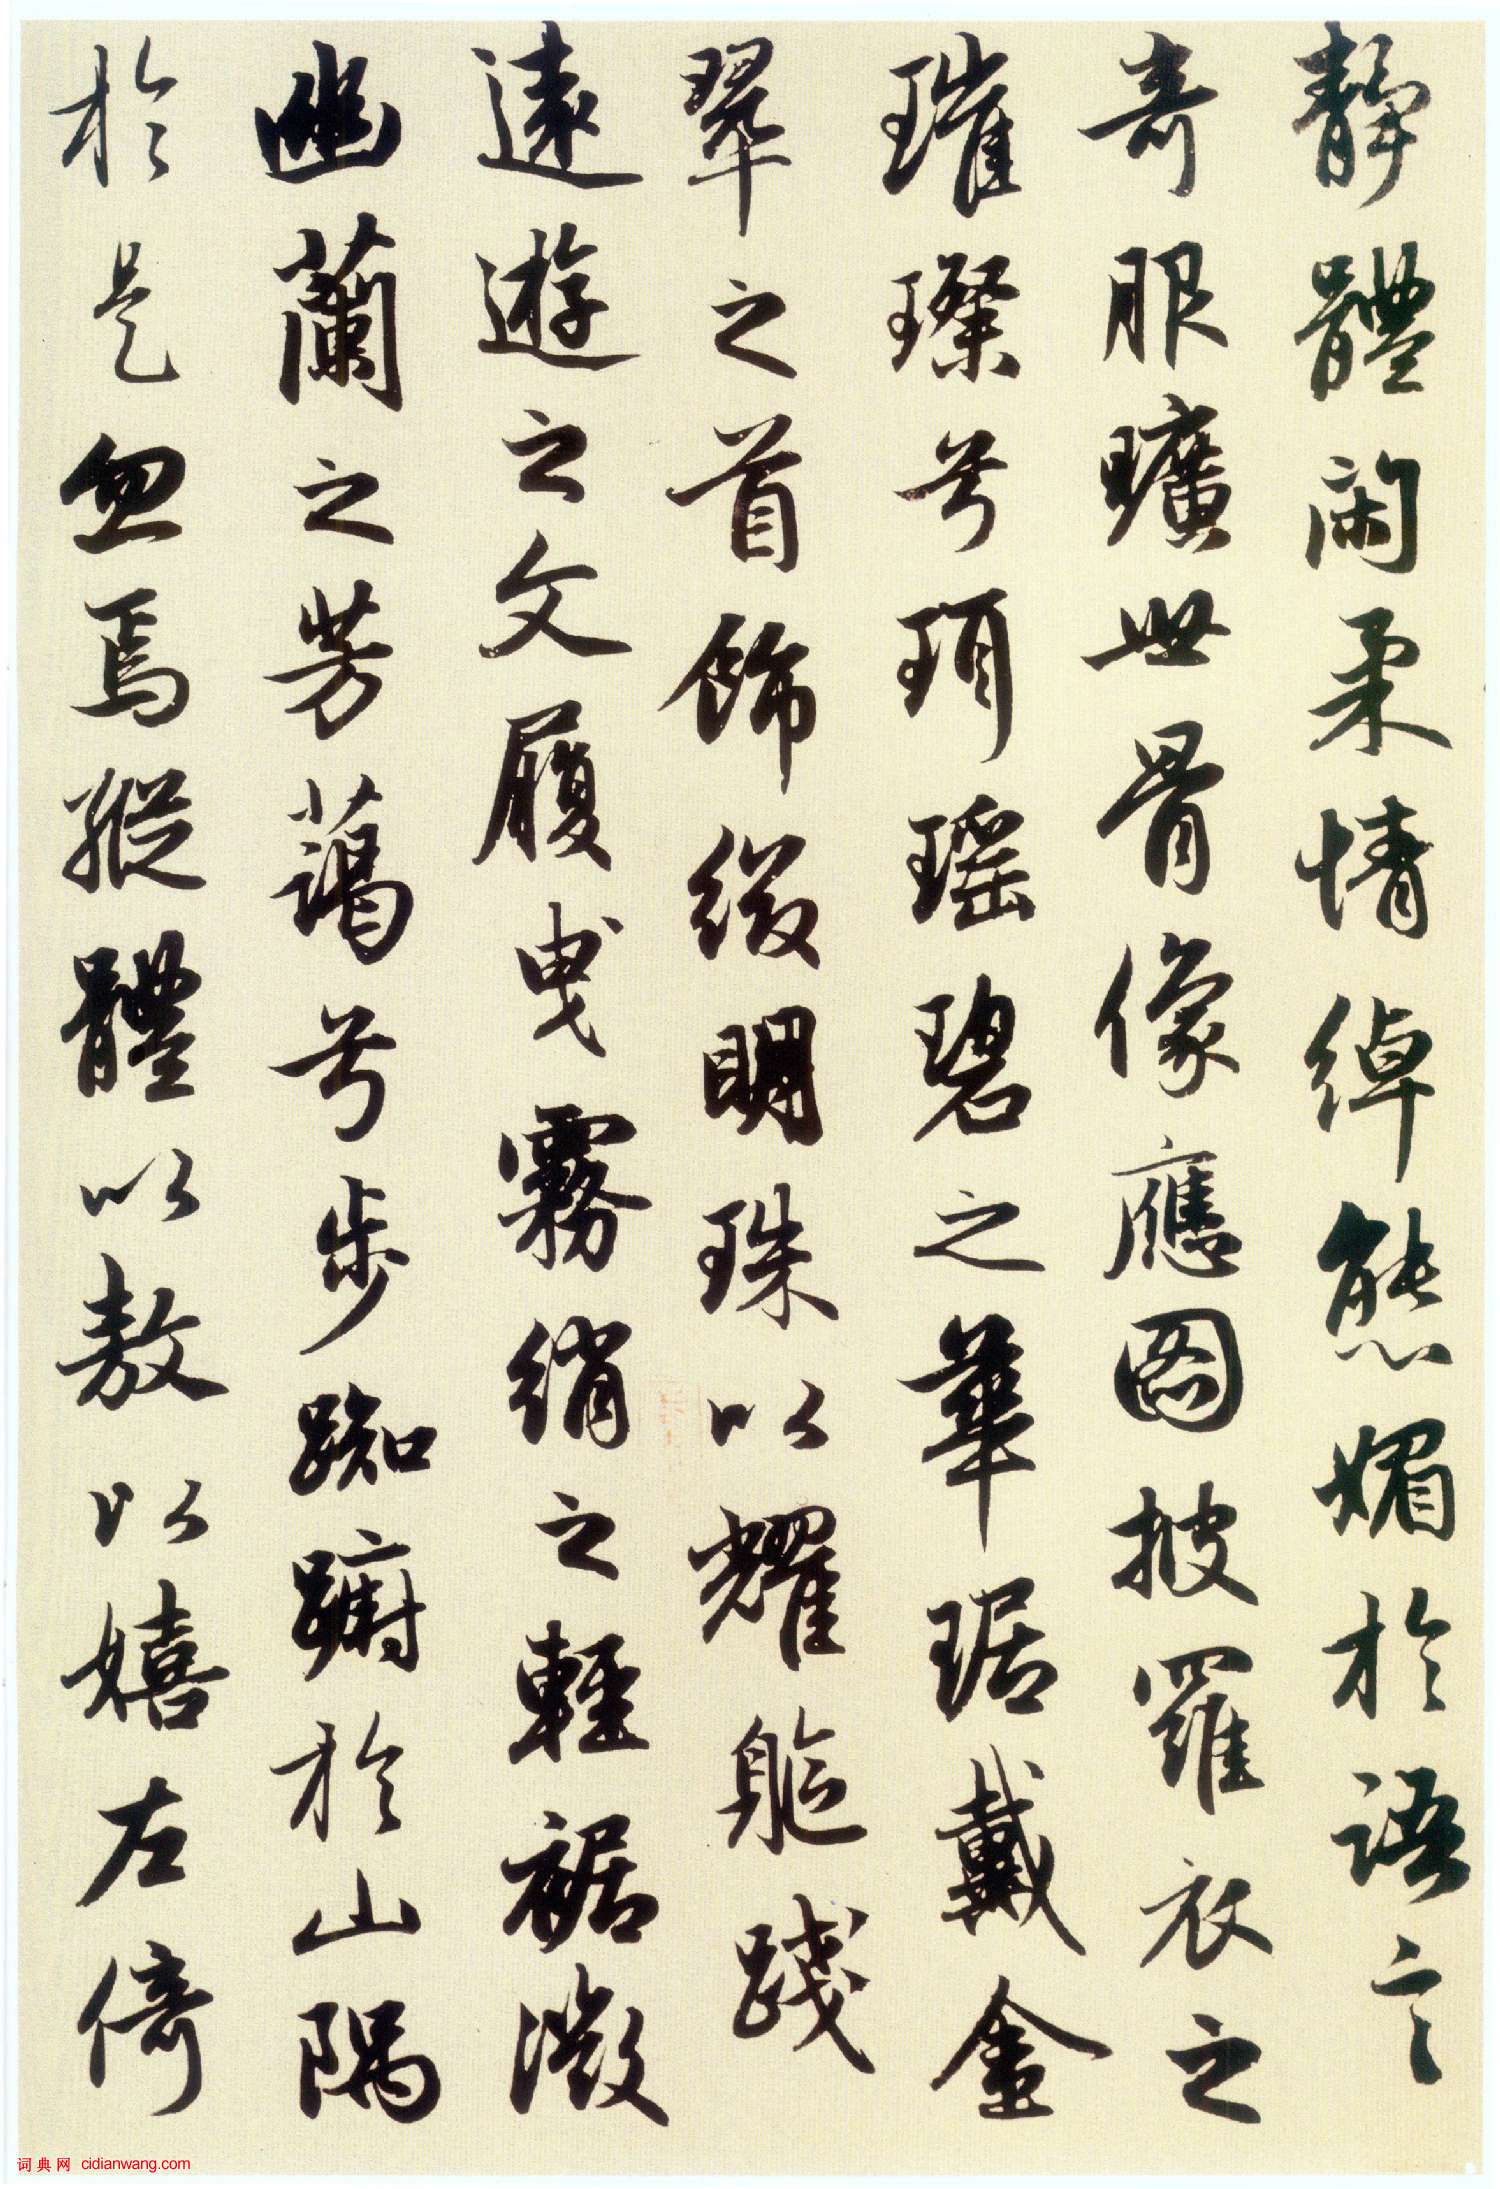 靜體閑柔情綽態媚於語言
奇服曠世骨像應圖披羅衣之
璀璨兮珥瑤碧之華琚戴金
翠之首飾綴明珠以耀軀踐
遠遊之文履曳霧綃之輕裾微
幽蘭之芳藹兮步踟躕於山隅
於是忽焉縱體以敖以嬉左倚
词典网 cidianwang.com